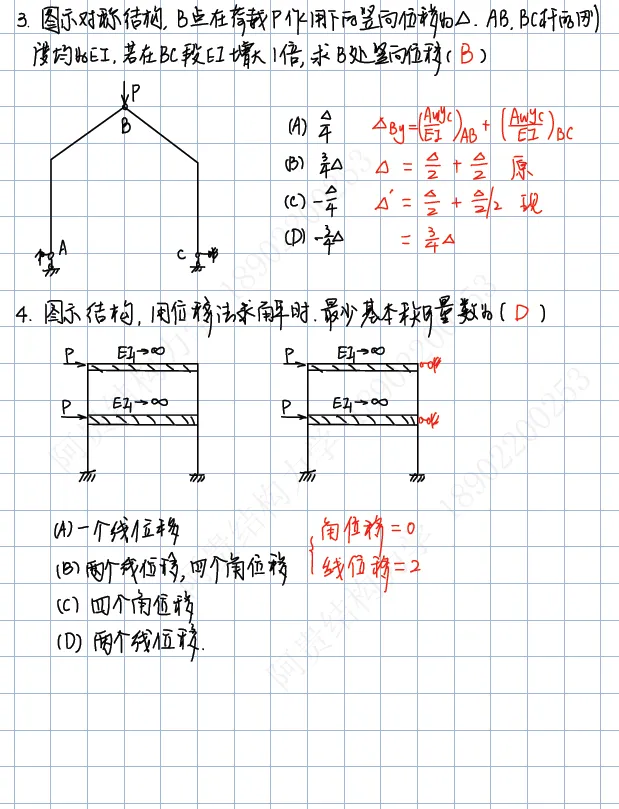 3. 图示对称结构, B点在荷载P作用下的竖向位移为△. AB, BC杆的刚
度均为EI, 若在BC段EI增大1倍, 求B处竖向位移( B )
P
B
A
C
(A) △/4
(B) 3/4△
(C) -△/4
(D) -3/4△
△By=(Awyc/EI)AB + (Awyc/EI)BC
△ = △/2 + △/2 原
△' = △/2 + △/2/2 现
= 3/4△
4. 图示结构, 用位移法求解时. 最少基本未知量数为( D )
P EI₁→∞
P EI₁→∞
P EI₁→∞
P EI₁→∞
(A) 一个线位移
(B) 两个线位移, 四个角位移
(C) 四个角位移
(D) 两个线位移.
角位移=0
线位移=2
阿贵结构力学 18902200253
阿贵结构力学 18902200253